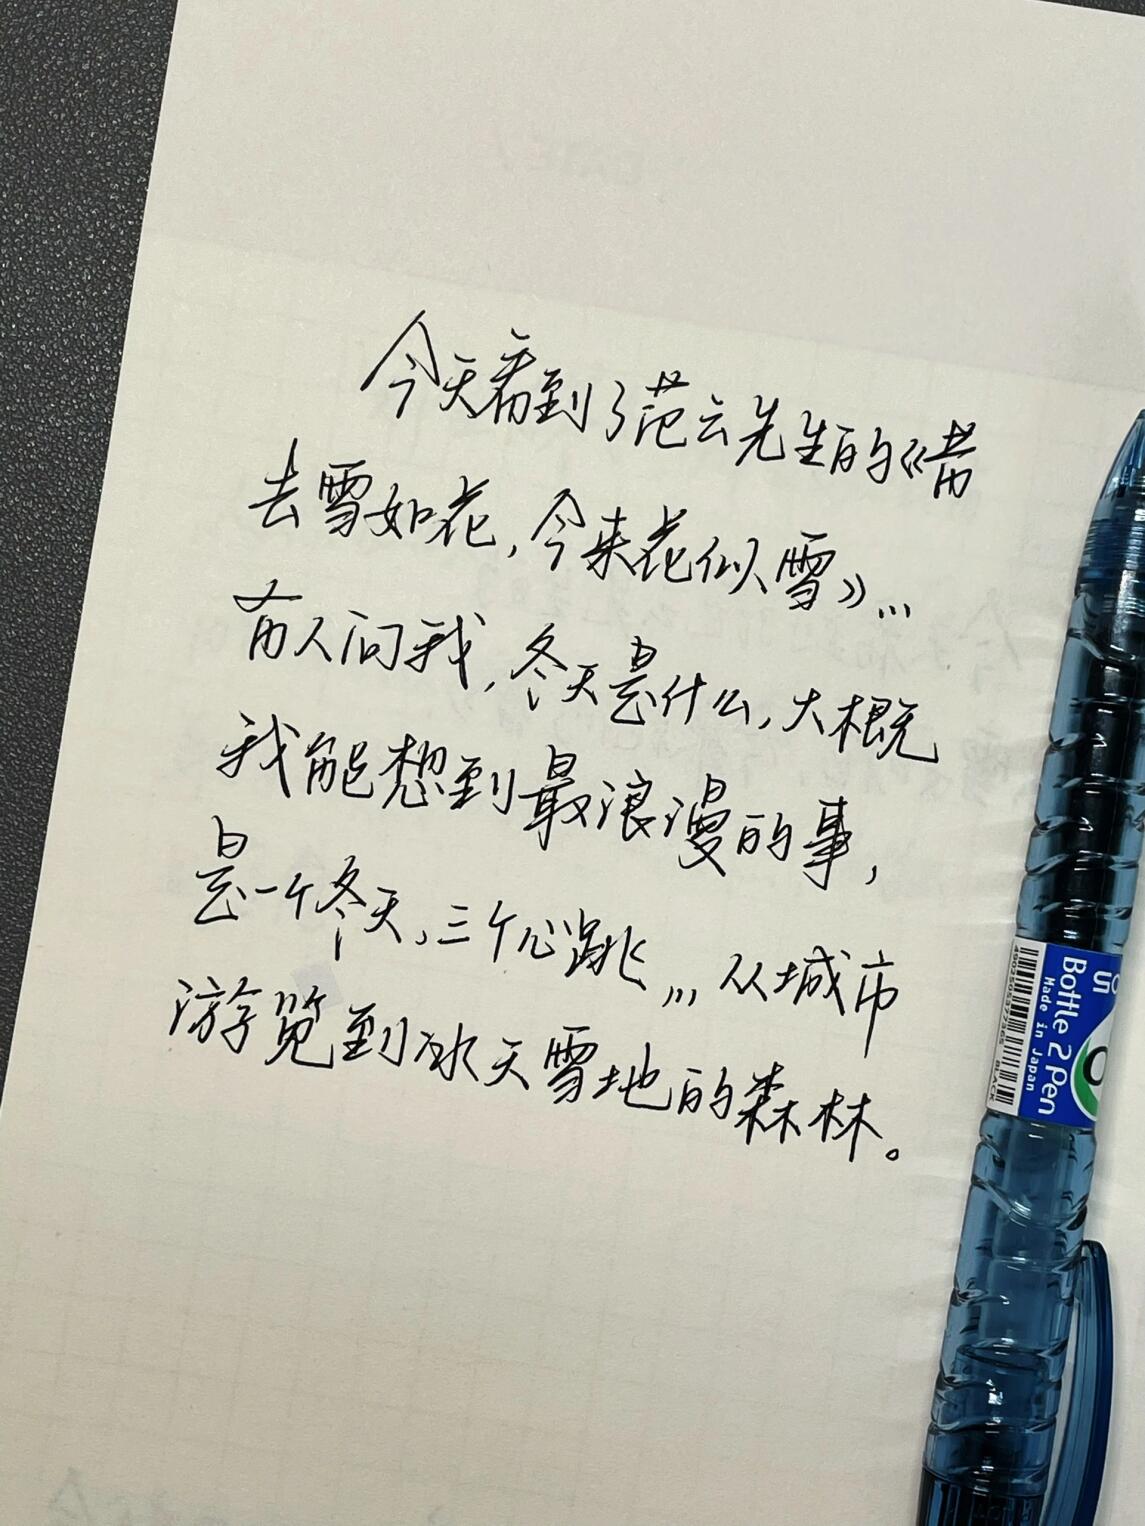 今天看到了范云先生的《昔
去雪如花,今来花似雪》...
有人问我,冬天是什么,大概
我能想到最浪漫的事,
是一个冬天,三个心跳...从城市
游览到冰天雪地的森林。
05
Bottle 2 Pen
Made in Japan
BLACK